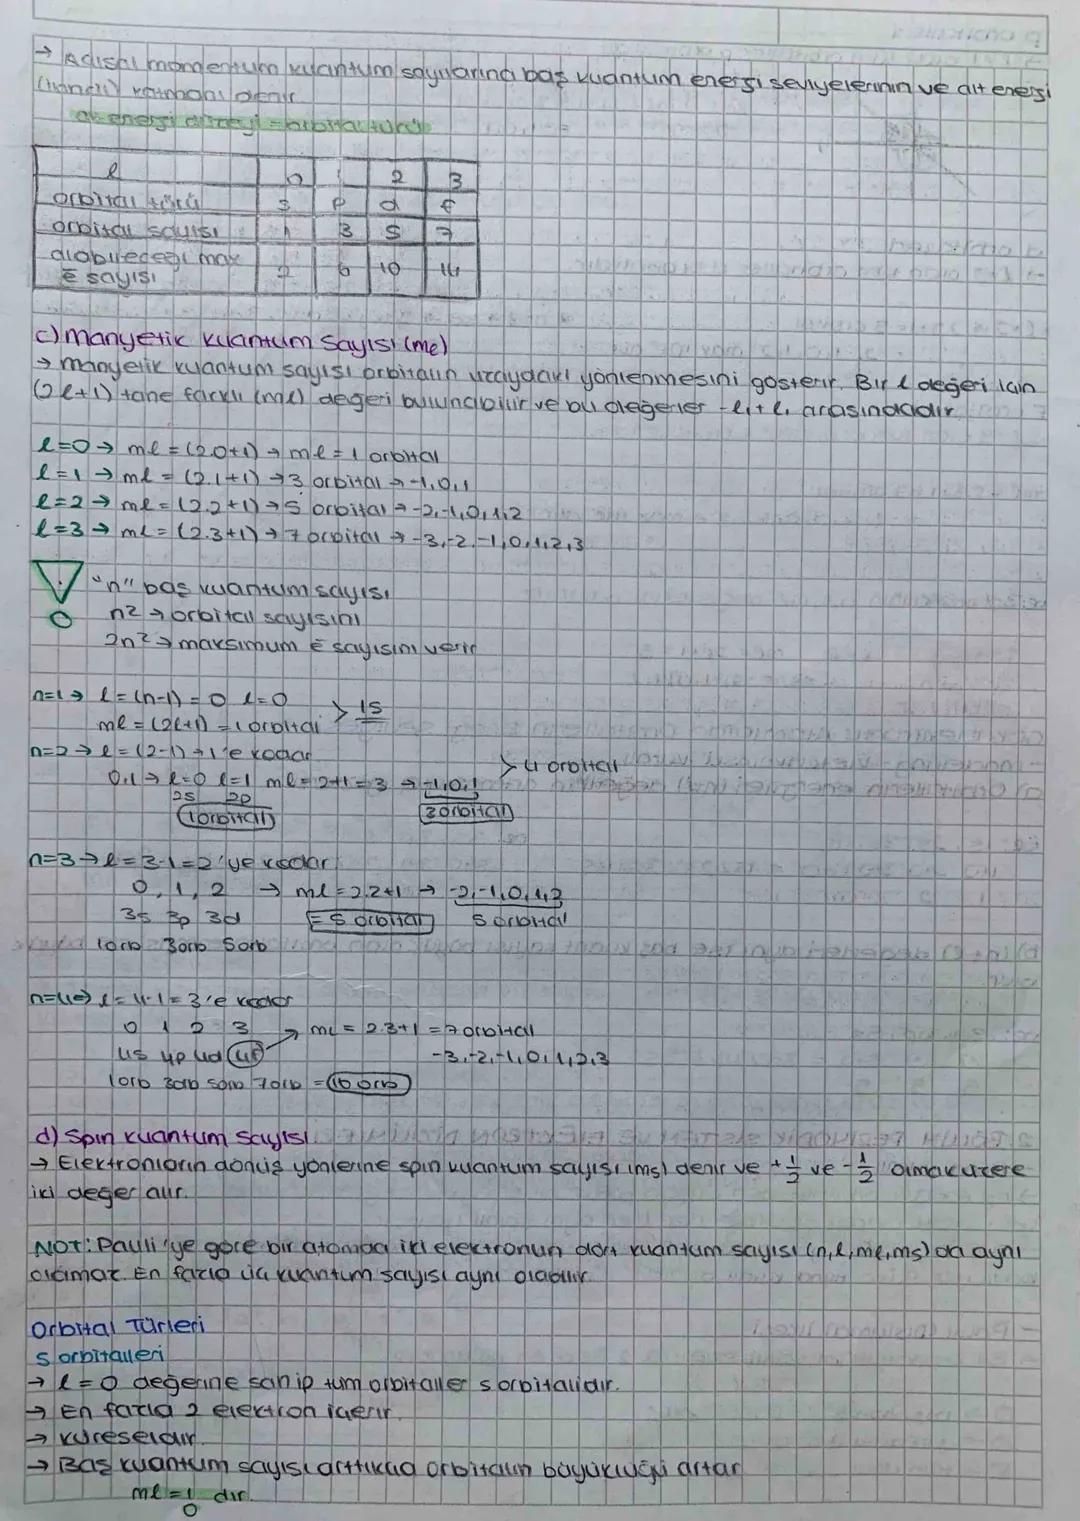 → Açısal momentum kuantum sayılarına baş kuantum enerji seviyelerinin ve alt enerji
katmanı denir
alt enerji düzeyi = orbital türü
l 0 1 2 3
orbital türü s p d f
orbital sayısı 1 3 5 7
alabileceği max
ē sayısı 2 6 10 14
c) Manyetik kuantum Sayısı (ml)
→ manyetik kuantum sayısı orbitalin uzaydaki yönlenmesini gösterir. Bir l değeri için
(2l+1) tane farklı (ml) değeri bulunabilir ve bu değerler -l, +l, arasındadır
l=0 → ml = (2.0+1) → ml = 1 orbital
l=1 → ml = (2.1+1) → 3 orbital → -1,0,1
l=2 → ml = (2.2+1) → 5 orbital → -2,-1,0,1,2
l=3 → ml = (2.3+1) → 7 orbital → -3,-2,-1,0,1,2,3
"n" baş kuantum sayısı
n2 → orbital sayısını
2n² → maksimum ē sayısını verir
n=1 → l = (n-1) = 0 l=0
ml = (2l+1) = 1 orbital > 1s
n=2 → l = (2-1) → 1'e kadar
0,1 → l=0 l=1 ml = 2+1 = 3 → -1,0,1 > 4 orbital
2s 2p
(1 orbital) 3 orbital
n=3 → l = 3-1=2'ye kadar
0, 1, 2 → ml = 2.2+1 → -2,-1,0,1,2
3s 3p 3d = 5 orbital 5 orbital
1orb 3orb 5orb
n=4 → l = 4-1 = 3'e kadar
0 1 2 3 → ml = 2.3+1 = 7 orbital
4s 4p 4d 4f -3,-2,-1,0,1,2,3
1orb 3orb 5orb 7orb = 16 orb
d) Spin kuantum Sayısı
→ Elektronların dönüş yönlerine spin kuantum sayısı (ms) denir ve +1/2 ve -1/2 olmak üzere
iki değer alır.
NOT: Pauli'ye göre bir atomda iki elektronun dört kuantum sayısı (n,l,ml,ms) da aynı
olamaz. En fazla üç kuantum sayısı aynı olabilir.
Orbital Türleri
s orbitalleri
→ l = 0 değerine sahip tüm orbitaller s orbitalidir.
→ En fazla 2 elektron içerir.
→ küreseldir.
→ Baş kuantum sayısı arttıkça orbitalin büyüklüğü artar
ml = 1 dir.
0